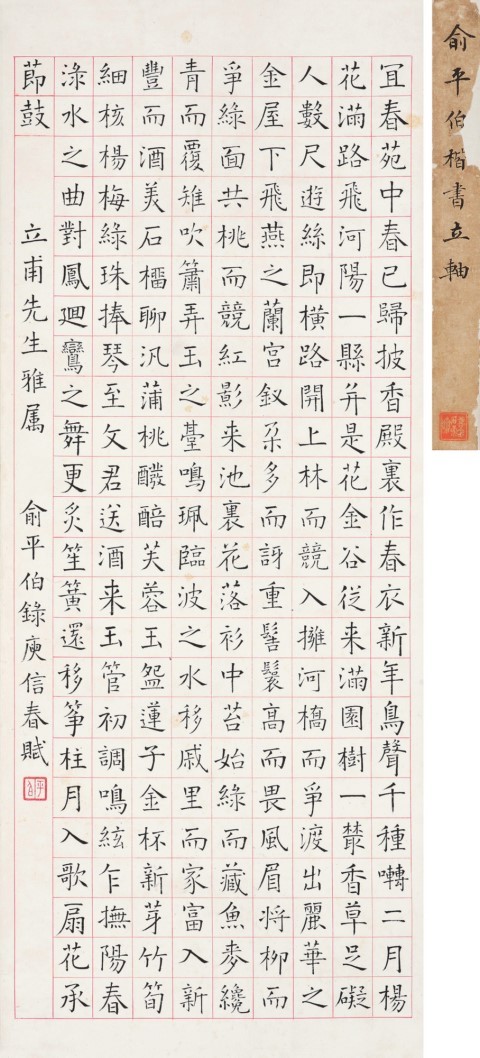 俞平伯楷書立軸
宜春苑中春已歸披香殿裏作春衣新年鳥聲千種囀二月楊
花滿路飛河陽一縣并是花金谷從来滿園樹一叢香草足礙
人數尺遊絲即橫路開上林而競入擁河橋而爭渡出麗華之
金屋下飛燕之蘭宮釵朶多而訝重髻鬟高而畏風眉将柳而
爭綠面共桃而競紅影来池裏花落衫中苔始綠而藏魚麥纔
青而覆雉吹簫弄玉之臺鳴珮臨波之水移戚里而家富入新
豐而酒美石榴聊汎蒲桃醱醅芙蓉玉盌蓮子金杯新芽竹筍
細核楊梅綠珠捧琴至文君送酒来玉管初調鳴絃乍撫陽春
淥水之曲對鳳廻鸞之舞更炙笙簧還移箏柱月入歌扇花承
節鼓
立甫先生雅属 俞平伯錄庾信春賦